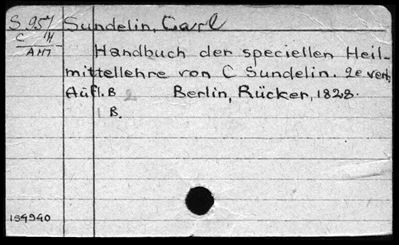 S 957 Sundelin, Carl
C
AM
Handbuch der speciellen Heil-
mittellehre von C Sundelin. 2e verb.
Aufl. B 2 Berlin, Rücker, 1828.
1 B.
154940